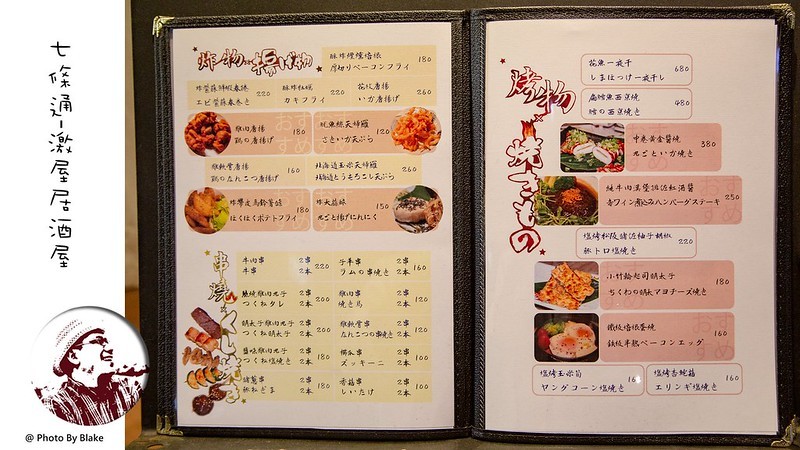 七條通-激屋居酒屋
@ Photo By Blake
炸物×揚げ物
酥炸煙燻培根 180
厚切りベーコンフライ
炸紫蘇鮮蝦春捲 220
エビ紫蘇春巻き
酥炸牡蠣 220
カキフライ
花枝唐揚 260
いか唐揚げ
雞肉唐揚 180
鶏の唐揚げ
魷魚絲天婦羅 120
さきいか天ぷら
雞軟骨唐揚 160
鶏のなんこつ唐揚げ
北海道玉米天婦羅 260
北海道とうもろこし天ぷら
炸帶皮馬鈴薯 180
ほくほくポテトフライ
炸大蒜球 150
丸ごと揚げにんにく
おすすめ
串焼×くし焼き
牛肉串 2串 220
牛串 2本
子羊串 2串 160
ラムの串焼き 2本
雞肉丸子 2串 200
つくねタレ 2本
雞肉串 2串 120
焼き鳥 2本
明太子雞肉丸子 2串 200
つくね明太子 2本
雞軟骨串 2串 120
なんこつの串焼き 2本
鹽味雞肉丸子 2串 180
つくね塩焼き 2本
櫛瓜串 2串 100
ズッキーニ 2本
2串 180
2本
香菇串 2串 100
しいたけ 2本
烤物×焼きもの
花魚一夜干 680
しまほっけ一夜干し
扁鱈魚西京燒 480
鱈の西京焼き
中卷黃金醬燒 380
丸ごといか焼き
純牛肉漢堡排佐紅酒醬 250
赤ワイン煮込みハンバーグステーキ
鹽烤松阪豬佐柚子胡椒 220
豚トロ塩焼き
小竹輪起司明太子 180
ちくわの明太マヨチーズ焼き
鐵板培根蛋燒 160
鉄板半熟ベーコンエッグ
鹽烤玉米筍 160
ヤングコーン塩焼き
鹽烤杏鮑菇 160
エリンギ塩焼き